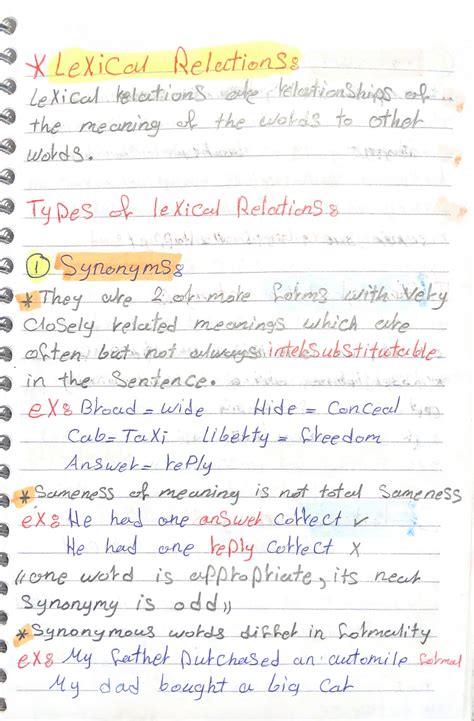 * Lexical Relations:
Lexical relations are relationships of
the meaning of the words to other
words.
Types of lexical Relations:
① Synonyms:
* They are 2 or more forms with very
closely related meanings which are
often but not always intersubstitutable
in the sentence.
ex: Broad = wide Hide = Conceal
Cab = Taxi liberty = freedom
Answer = reply
* Sameness of meaning is not total Sameness
ex: He had one answer correct ✓
He had one reply correct X
((one word is appropriate, its near
Synonymy is odd))
* Synonymous words differ in formality
ex: My father purchased an automile formal
My dad bought a big car